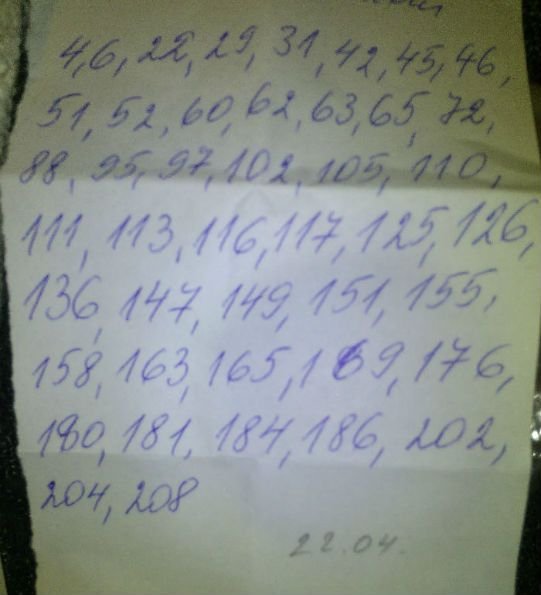 4, 6, 22, 29, 31, 42, 45, 46,
51, 52, 60, 62, 63, 65, 72,
88, 95, 97, 102, 105, 110,
111, 113, 116, 117, 125, 126,
136, 147, 149, 151, 155,
158, 163, 165, 169, 176,
180, 181, 184, 186, 202,
204, 208
22.04.